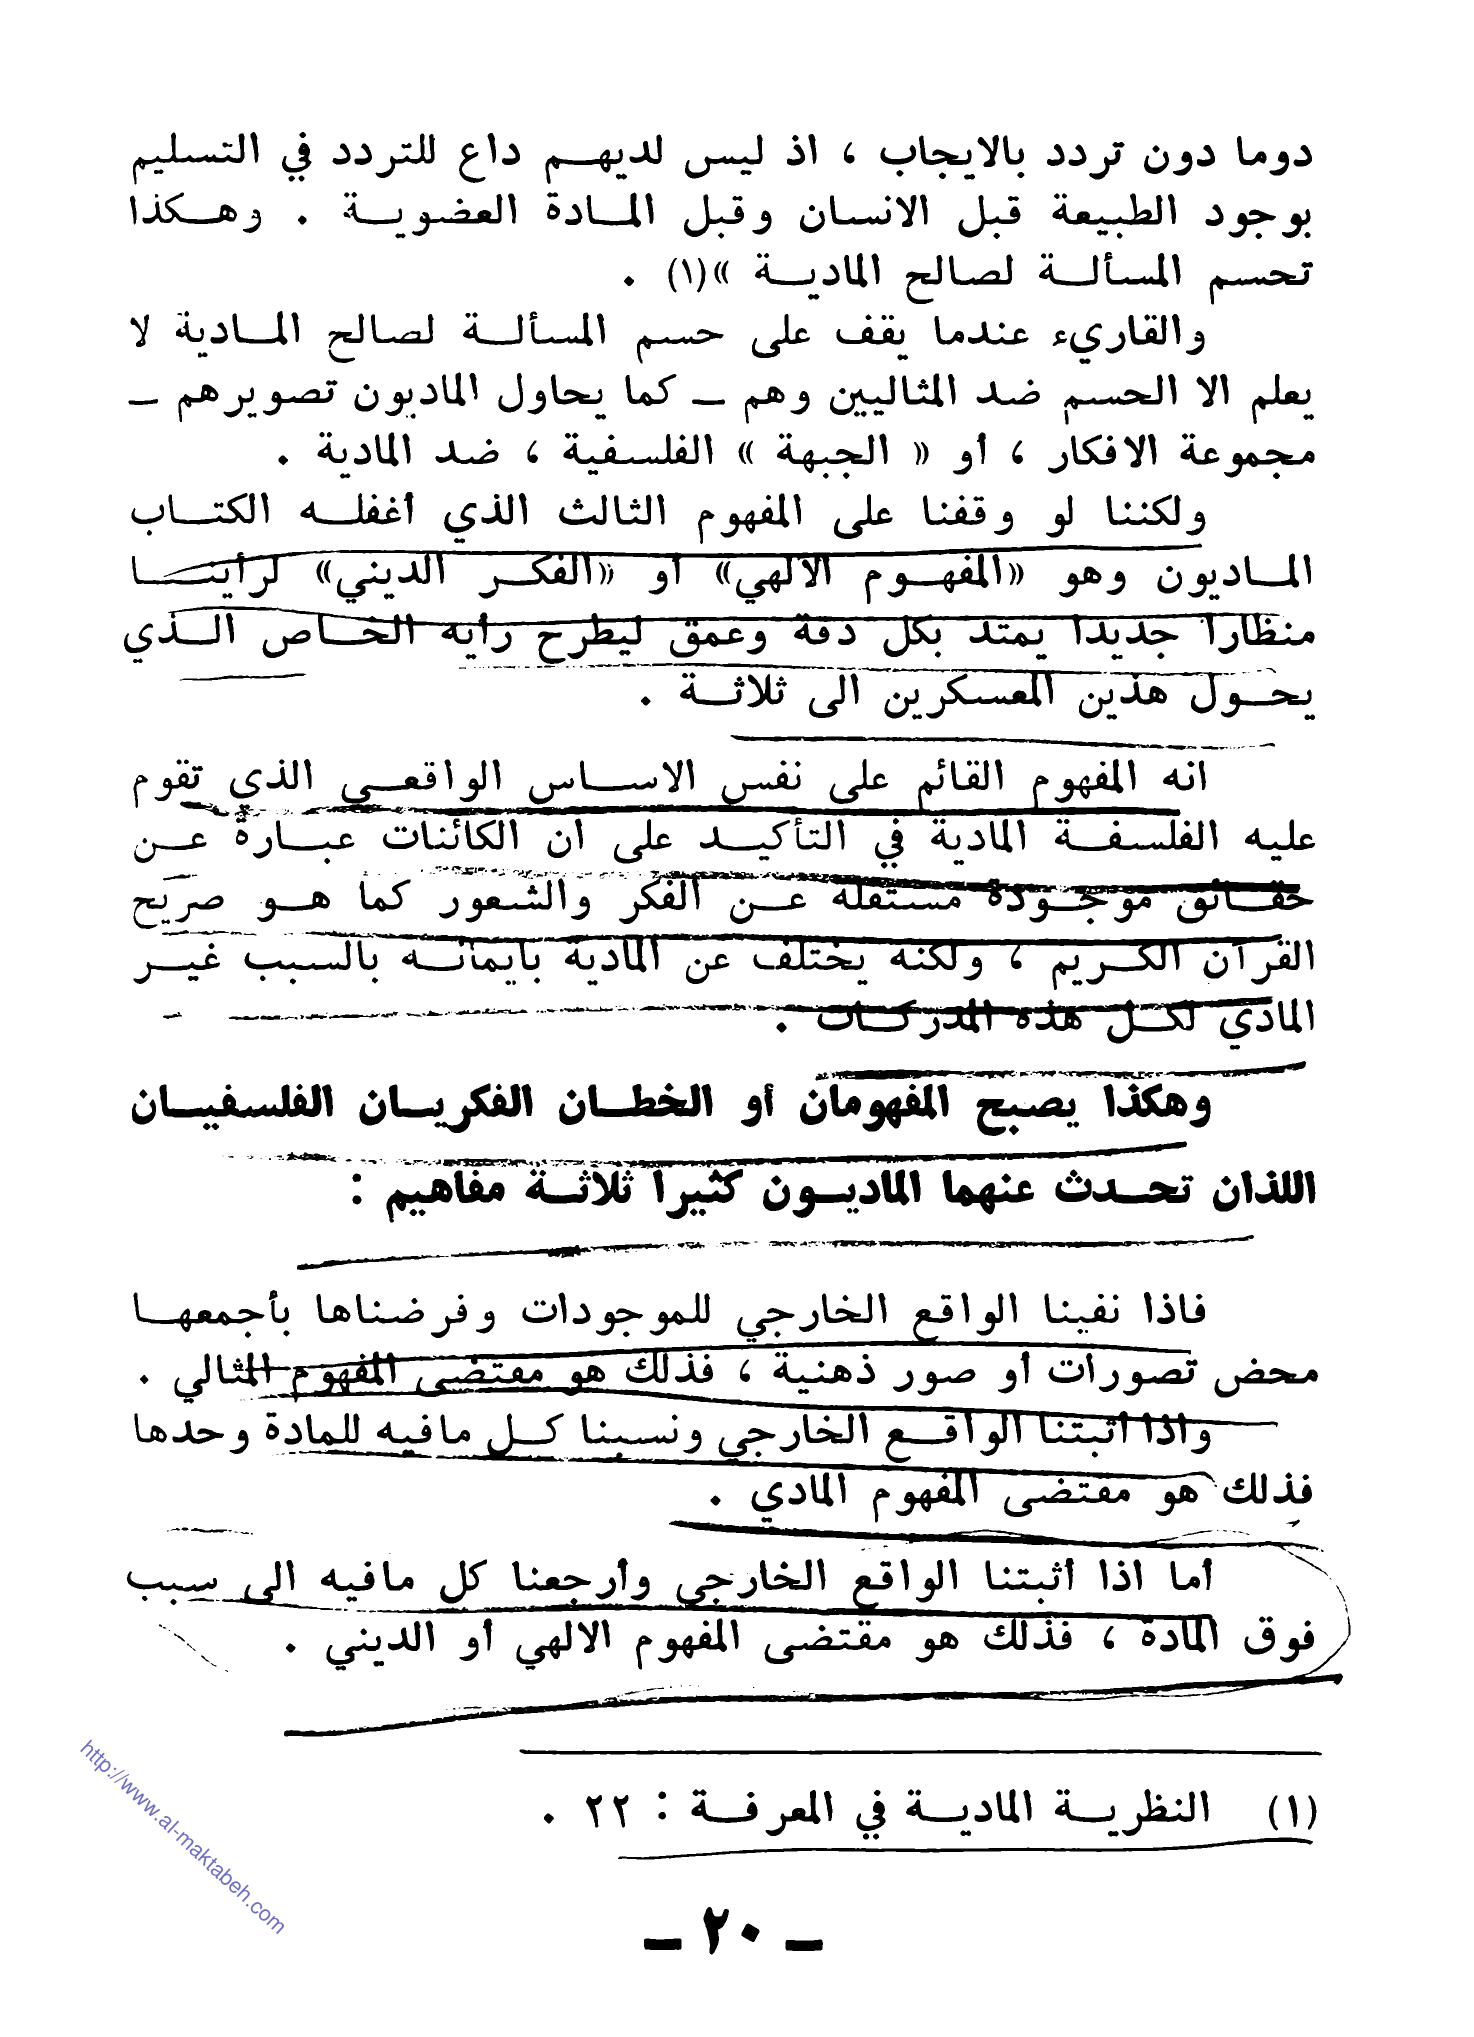 دوما دون تردد بالايجاب ، اذ ليس لديهم داع للتردد في التسليم
بوجود الطبيعة قبل الانسان وقبل المادة العضوية . وهكذا
تحسم المسألة لصالح المادية »(١) .
والقاريء عندما يقف على حسم المسألة لصالح المادية لا
يعلم الا الحسم ضد المثاليين وهم – كما يحاول الماديون تصويرهم –
مجموعة الافكار ، أو « الجبهة » الفلسفية ، ضد المادية .
ولكننا لو وقفنا على المفهوم الثالث الذي أغفله الكتاب
الماديون وهو «المفهوم الالهي» أو «الفكر الديني» لرأينا
منظارا جديدا يمتد بكل دقة وعمق ليطرح رأيه الخاص الذي
يحول هذين المعسكرين الى ثلاثة .
انه المفهوم القائم على نفس الاساس الواقعي الذي تقوم
عليه الفلسفة المادية في التأكيد على ان الكائنات عبارة عن
حقائق موجودة مستقلة عن الفكر والشعور كما هو صريح
القرآن الكريم ، ولكنه يختلف عن المادية بايمانه بالسبب غير
المادي لكل هذه المدركات .
وهكذا يصبح المفهومان أو الخطان الفكريان الفلسفيان
اللذان تحدث عنهما الماديون كثيرا ثلاثة مفاهيم :
فاذا نفينا الواقع الخارجي للموجودات وفرضناها بأجمعها
محض تصورات أو صور ذهنية ، فذلك هو مقتضى المفهوم المثالي .
واذا أثبتنا الواقع الخارجي ونسبنا كل مافيه للمادة وحدها
فذلك هو مقتضى المفهوم المادي .
أما اذا أثبتنا الواقع الخارجي وأرجعنا كل مافيه الى سبب
فوق المادة ، فذلك هو مقتضى المفهوم الالهي أو الديني .
(١) النظرية المادية في المعرفة : ٢٢ .
– ٢٠ –
http://www.al-maktabeh.com